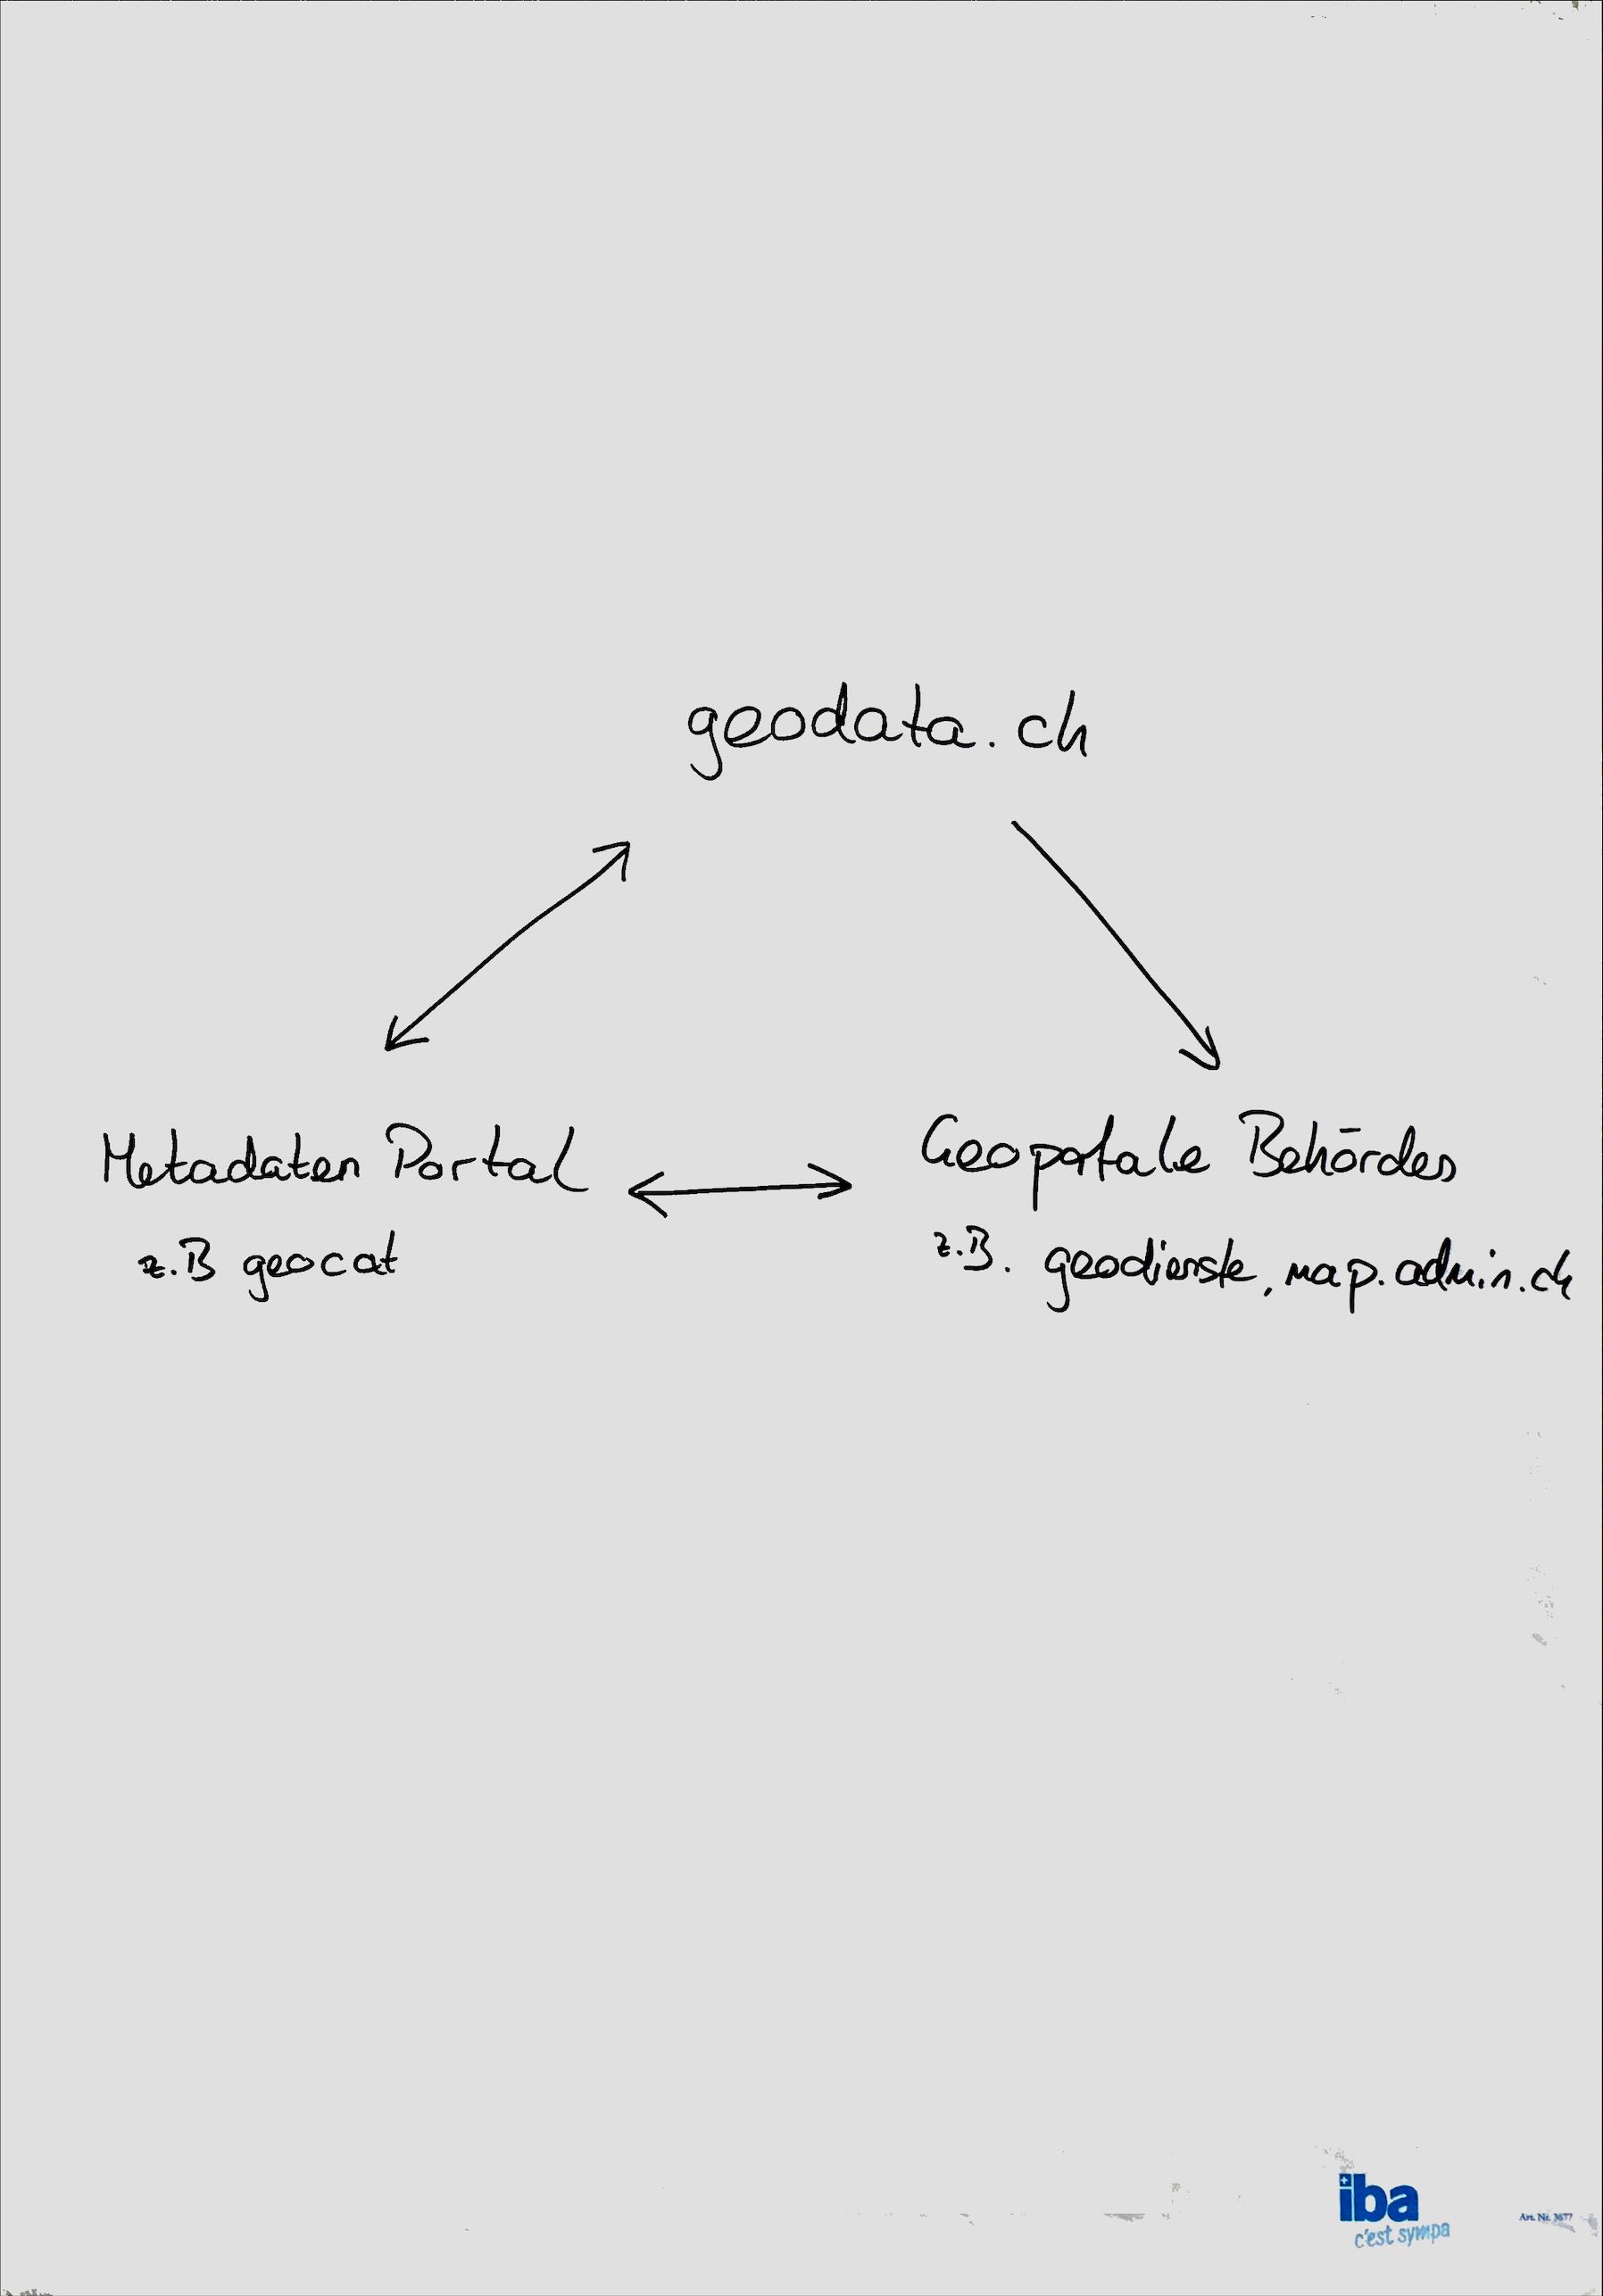 geodata.ch
Metadaten Portal
z.B geocat
Geoportale Behörden
z.B. geodienste, map.admin.ch
iba
c'est sympa
Art. Nr. 3677